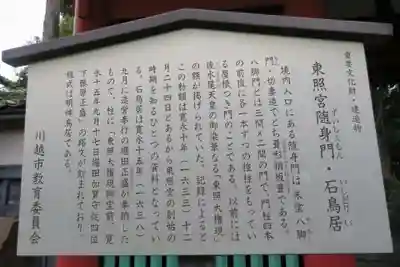 重要文化財・建造物
東照宮随身門・石鳥居
ずいしんもん
いしどりい
境内入口にある随身門は朱塗八脚
門・切妻造でとち葺形銅板葺である。
八脚門とは三間×二間の門で、門柱四本
の前後に各一本ずつの控柱をもってい
る屋根つき門のことである。以前には
後水尾天皇の御染筆なる「東照大権現」
の額が掲げられていた。記録によると
この勅額は寛永十年(一六三三)十二
月二十四日とあるから東照宮の創始の
時期を知るひとつの資料となってい
る。石鳥居は寛永十五年(一六三八)
九月に造営奉行堀田正盛が奉納した
もので、柱に「東照大権現御宝前、寛
永十五年九月十七日堀田加賀守従四位
下藤原正盛」の銘文が刻まれており、
様式は明神鳥居である。
川越市教育委員会